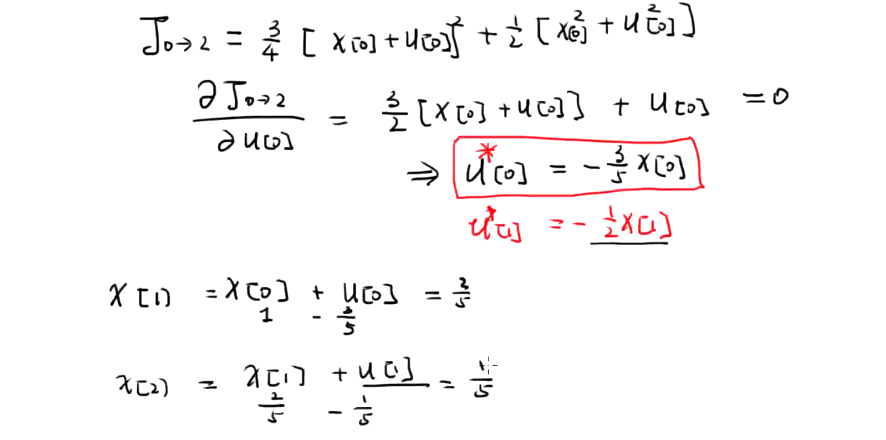 J₀→₂ = 3/4 [x[0] + u[0]]² + 1/2 [x²[0] + u²[0]]
∂J₀→₂/∂u[0] = 3/2 [x[0] + u[0]] + u[0] = 0
⇒ u*[0] = -3/5 x[0]
u*[1] = -1/2 x[1]
x[1] = x[0] + u[0] = 2/5
1 -3/5
x[2] = x[1] + u[1] = 1/5
2/5 -1/5